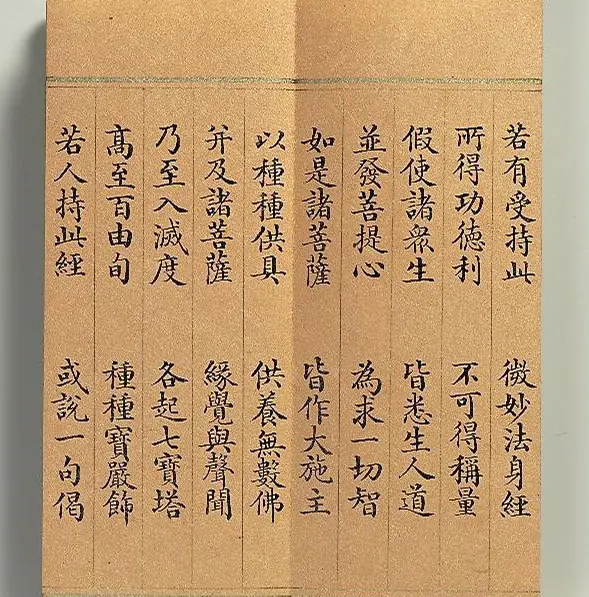 若有受持此 微妙法身經
所得功德利 不可得稱量
假使諸眾生 皆悉生人道
並發菩提心 為求一切智
如是諸菩薩 皆作大施主
以種種供具 供養無數佛
并及諸菩薩 緣覺與聲聞
乃至入滅度 各起七寶塔
高至百由旬 種種寶嚴飾
若人持此經 或說一句偈